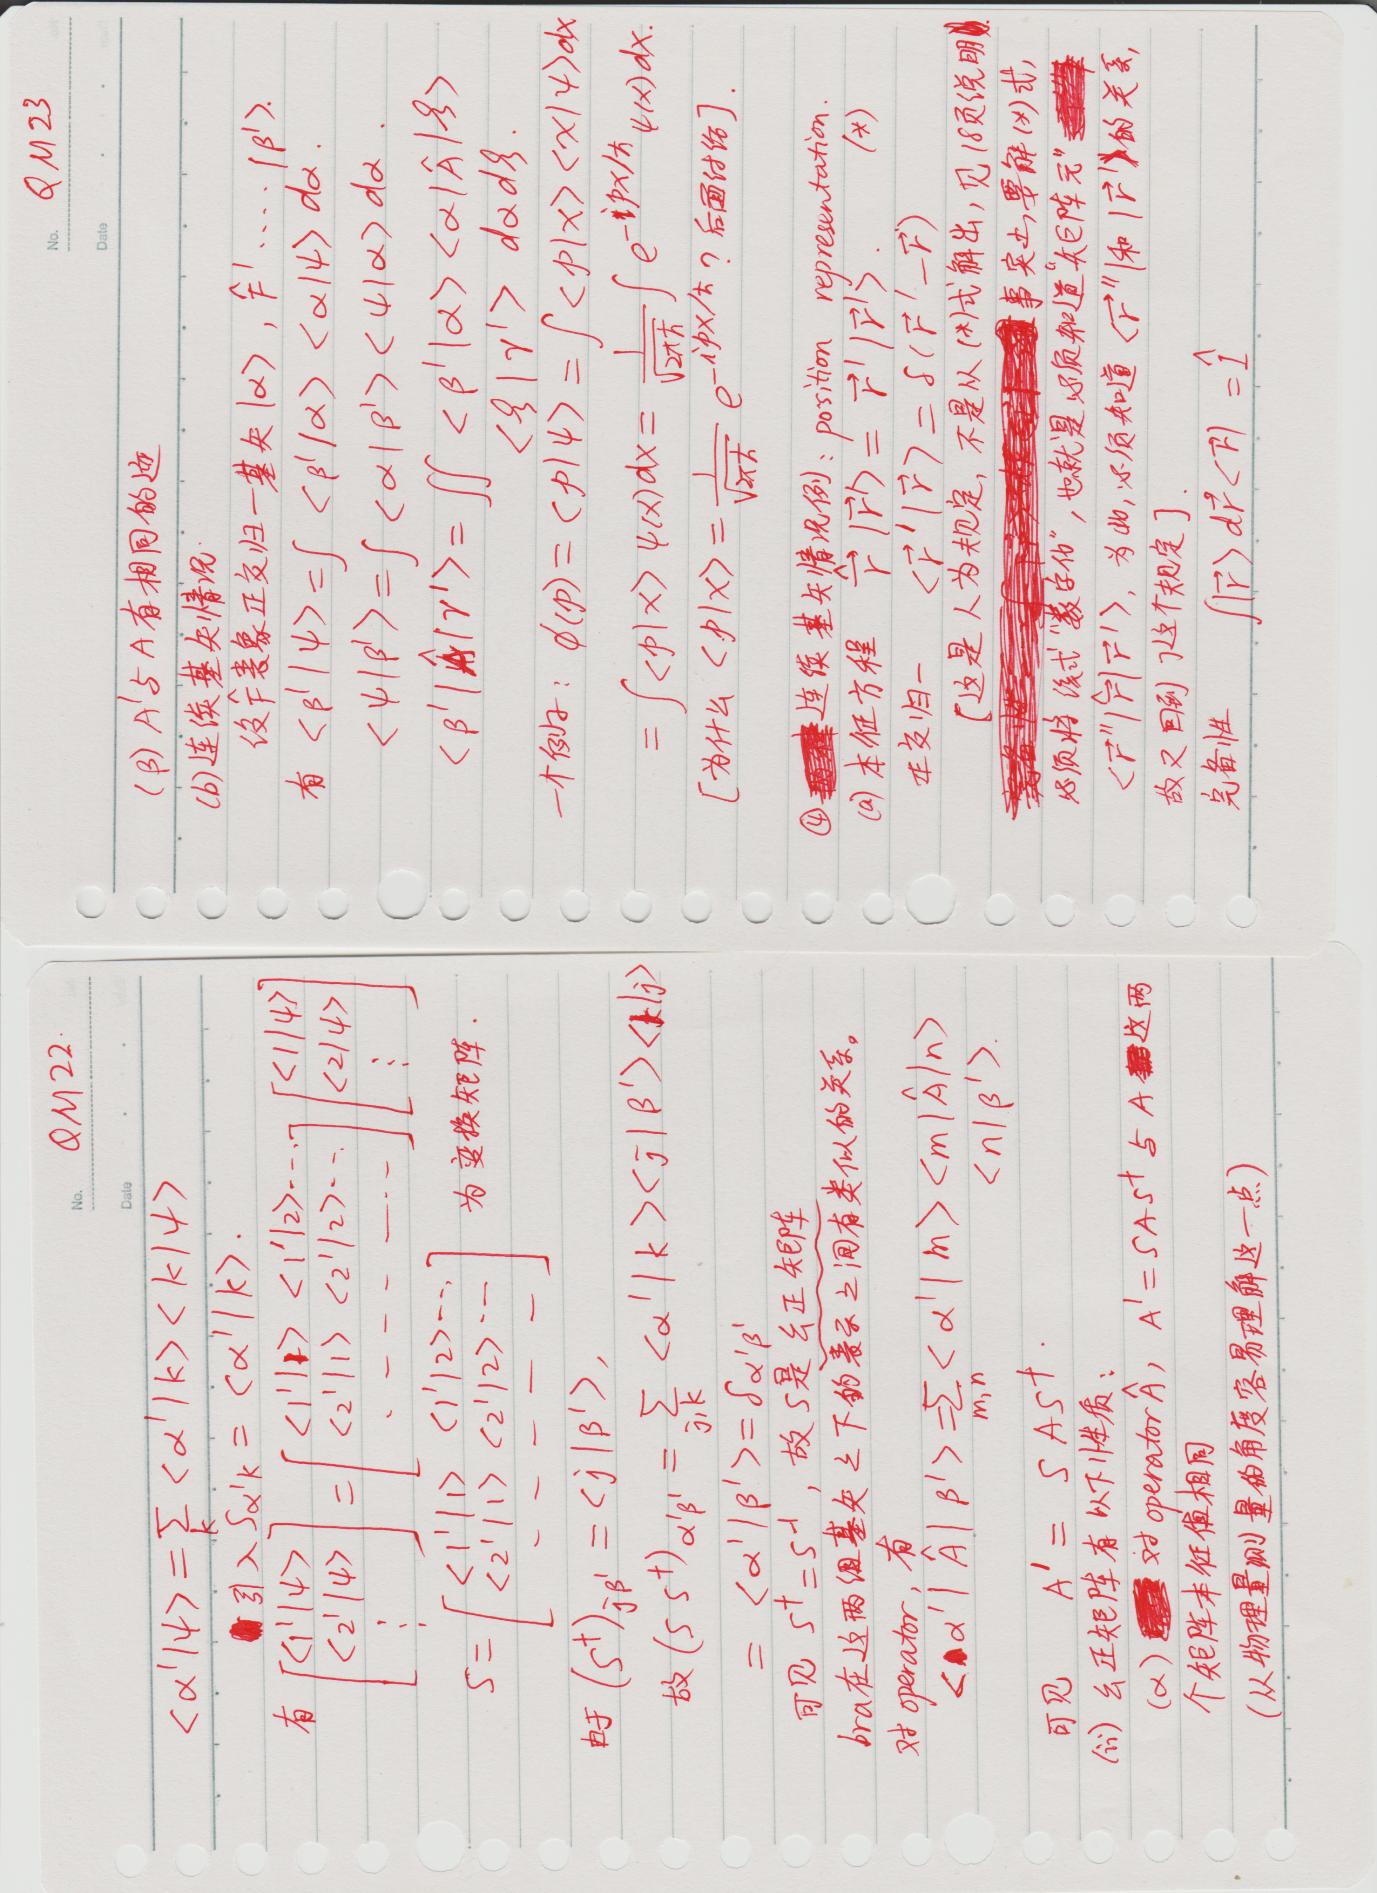 No. QM22.
Date
<α'|ψ> = Σ_k <α'|k><k|ψ>
引入 S_α'k = <α'|k>.
有 [<1'|ψ> <2'|ψ> ⋮] = [<1'|1> <1'|2>··· <2'|1> <2'|2>··· - - - - - -] [<1|ψ> <2|ψ> ⋮]
S = [<1'|1> <1'|2>··· <2'|1> <2'|2>··· - - - - -] 为变换矩阵.
由于 (S†)_jβ' = <j|β'>,
故 (SS†)_α'β' = Σ_j,k <α'|k><j|β'><k|j>
= <α'|β'> = δα'β'
可见 S† = S⁻¹, 故S是幺正矩阵
bra在这两组基矢之下的表示之间有类似的关系。
对 operator, 有
<α'|Â|β'> = Σ_m,n <α'|m> <m|Â|n>
<n|β'>.
可见 A' = SAS†.
(ii) 幺正矩阵有以下性质:
(α) 对 operator Â, A' = SAS† 与 A 这两
个矩阵本征值相同
(从物理量测量的角度容易理解这一点)
No. QM23
Date
(β) A'与A有相同的迹
(b) 连续基矢情况.
设F̂表象正交归一基矢|α>, F̂' .... |β'>.
有 <β'|ψ> = ∫ <β'|α> <α|ψ> dα.
<ψ|β'> = ∫ <α|β'> <ψ|α> dα.
<β'|Â|γ'> = ∬ <β'|α> <α|Â|ξ>
<ξ|γ'> dα dξ.
一个例子: φ(p) = <p|ψ> = ∫ <p|x> <x|ψ> dx
= ∫ <p|x> ψ(x) dx = 1/√(2πħ) ∫ e^(-ipx/ħ) ψ(x) dx.
[为什么 <p|x> = 1/√(2πħ) e^(-ipx/ħ) ? 后面讨论].
④ 连续基矢情况例: position representation.
(a) 本征方程 r̂⃗ |r⃗'> = r⃗' |r⃗'>. (*)
正交归一 <r⃗'|r⃗> = δ(r⃗' - r⃗)
[这是人为规定, 不是从(*)式解出, 见18页说明.
事实上, 要解(*)式,
必须将该式“数字化”, 也就是必须知道“矩阵元”
<r⃗''|r̂⃗|r⃗'>, 为此, 必须知道 <r⃗''|和|r⃗'>的关系,
故又回到了这个规定].
完备性 ∫|r⃗> dr⃗ <r⃗| = 1̂